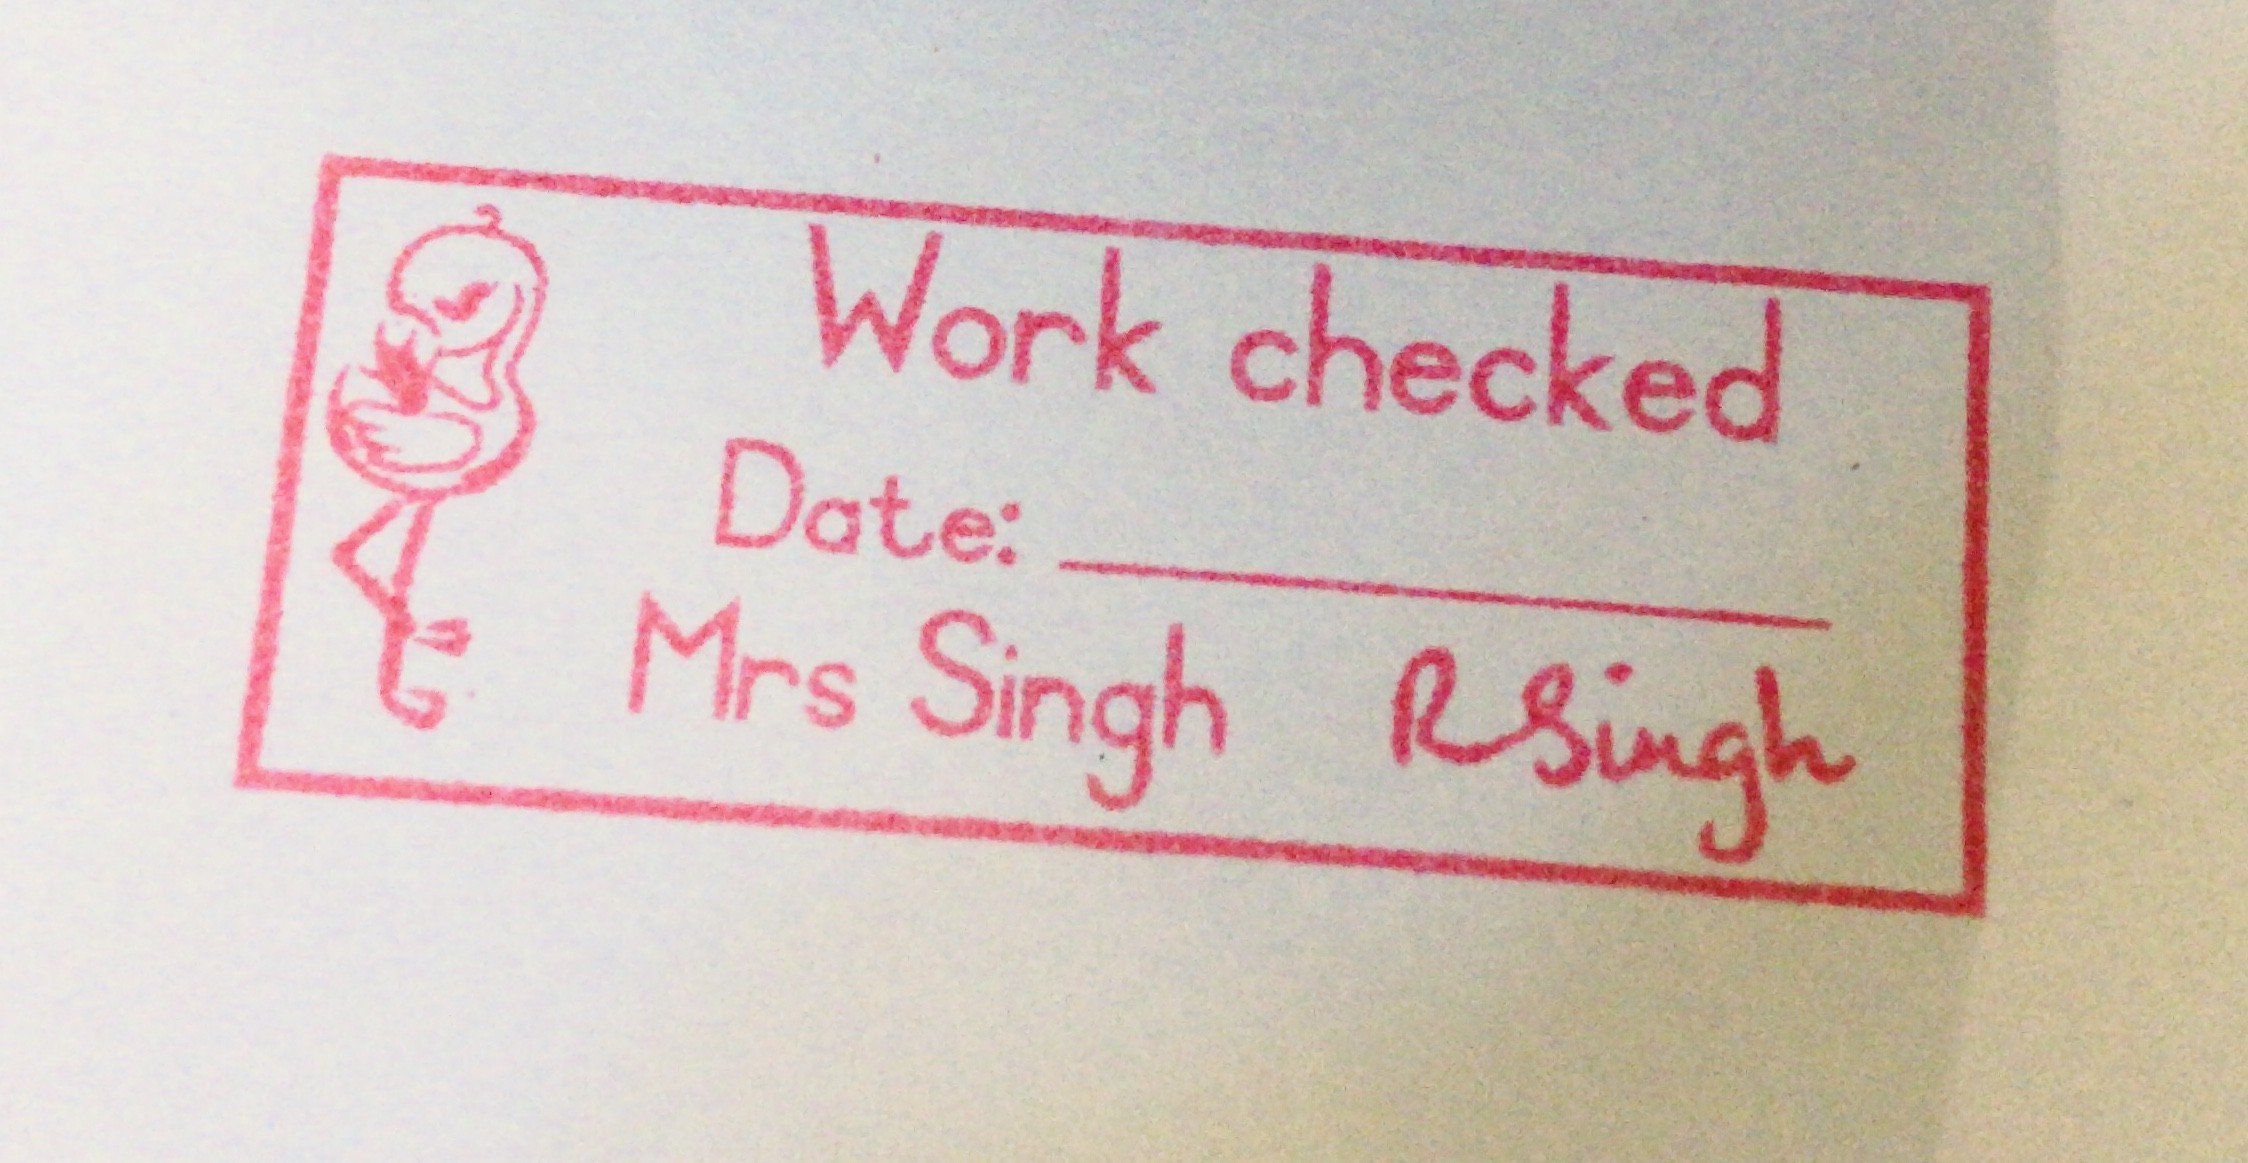 Work checked
Date:
Mrs Singh RSingh